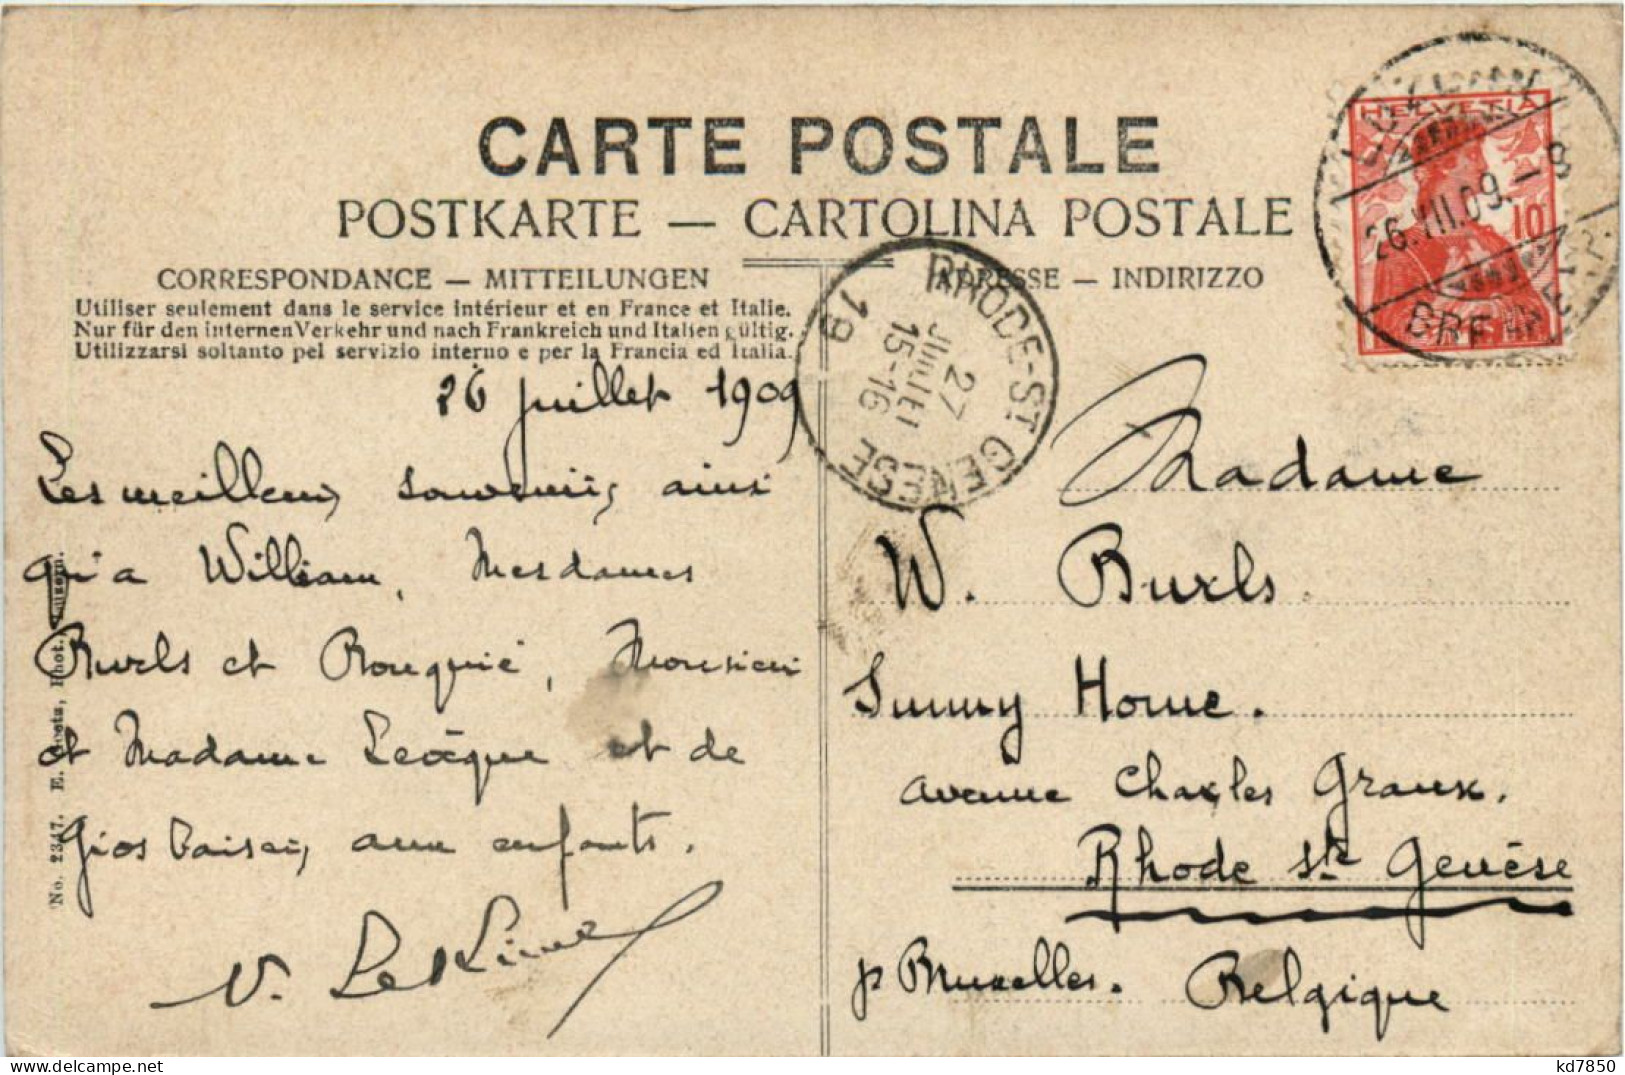 CARTE POSTALE
POSTKARTE — CARTOLINA POSTALE
CORRESPONDANCE — MITTEILUNGEN
Utiliser seulement dans le service intérieur et en France et Italie.
Nur für den internen Verkehr und nach Frankreich und Italien gültig.
Utilizzarsi soltanto pel servizio interno e per la Francia ed Italia.
ADRESSE — INDIRIZZO
HELVETIA
10
26.VII.09.-8
RHODE-ST GENESE
27
JUILLET
15-16
19
26 juillet 1909
Les meilleurs souvenirs, ainsi
qu'a William, Mesdames
Burls et Rouquié, Monsieur
et Madame et de
Gros baisers aux enfants.
V.
Madame
W. Burls.
Sunny Home.
avenue Charles Graux.
Rhode Ste Genèse
p Bruxelles. Belgique
No. 2347. E. Phot.
kd7850